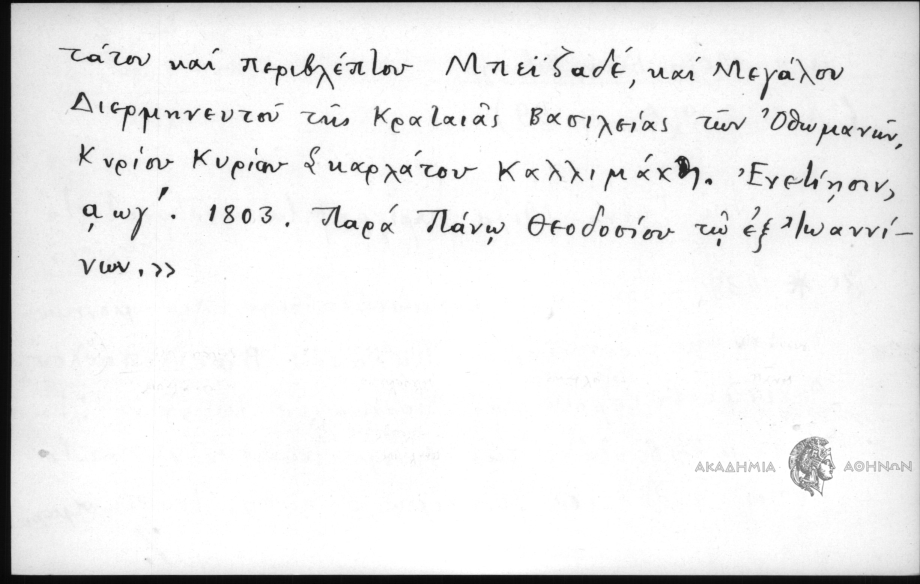 τάτου καί περιβλέπτου Μπεϊζαδέ, καί Μεγάλου
Διερμηνευτοῦ τῆς Κραταιᾶς Βασιλείας τῶν Ὀθωμανῶν,
Κυρίου Κυρίου Σκαρλάτου Καλλιμάχη. Ἐνετίῃσιν,
͵αωγ΄. 1803. Παρά Πάνῳ Θεοδοσίου τῷ ἐξ Ἰωαννί–
νων.»
ΑΚΑΔΗΜΙΑ ΑΘΗΝΩΝ